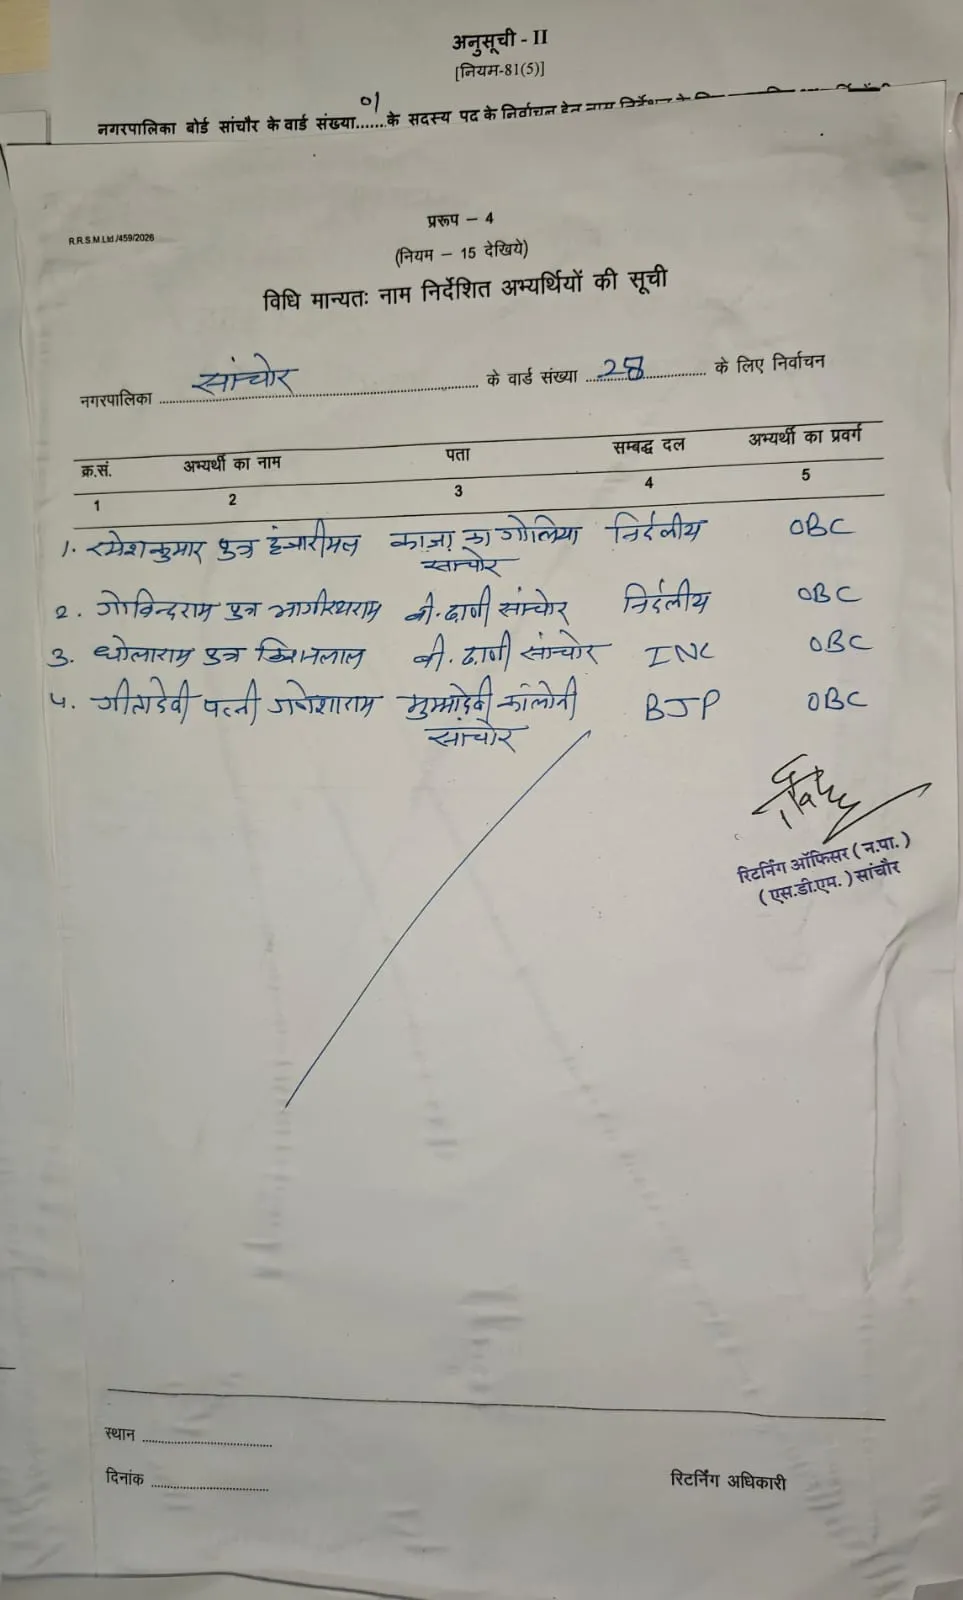 अनुसूची - II
[नियम-81(5)]
नगरपालिका बोर्ड सांचौर के वार्ड संख्या 01 के सदस्य पद के निर्वाचन हेतु नाम
R.R.S.M.Ltd./459/2026
प्ररूप – 4
(नियम – 15 देखिये)
विधि मान्यतः नाम निर्देशित अभ्यर्थियों की सूची
नगरपालिका सांचोर के वार्ड संख्या 28 के लिए निर्वाचन
क्र.सं. अभ्यर्थी का नाम पता सम्बद्ध दल अभ्यर्थी का प्रवर्ग
1 2 3 4 5
1. रमेशकुमार पुत्र हंजारीमल काजा का गोलिया निर्दलीय OBC
सांचोर
2. गोविन्दराम पुत्र भागीरथराम बी. ढाणी सांचोर निर्दलीय OBC
3. धोलाराम पुत्र किशनलाल बी. ढाणी सांचोर INC OBC
4. गीतादेवी पत्नी गणेशाराम मुम्मादेवी कॉलोनी BJP OBC
सांचोर
रिटर्निंग ऑफिसर (न.पा.)
(एस.डी.एम.) सांचौर
स्थान
दिनांक रिटर्निंग अधिकारी